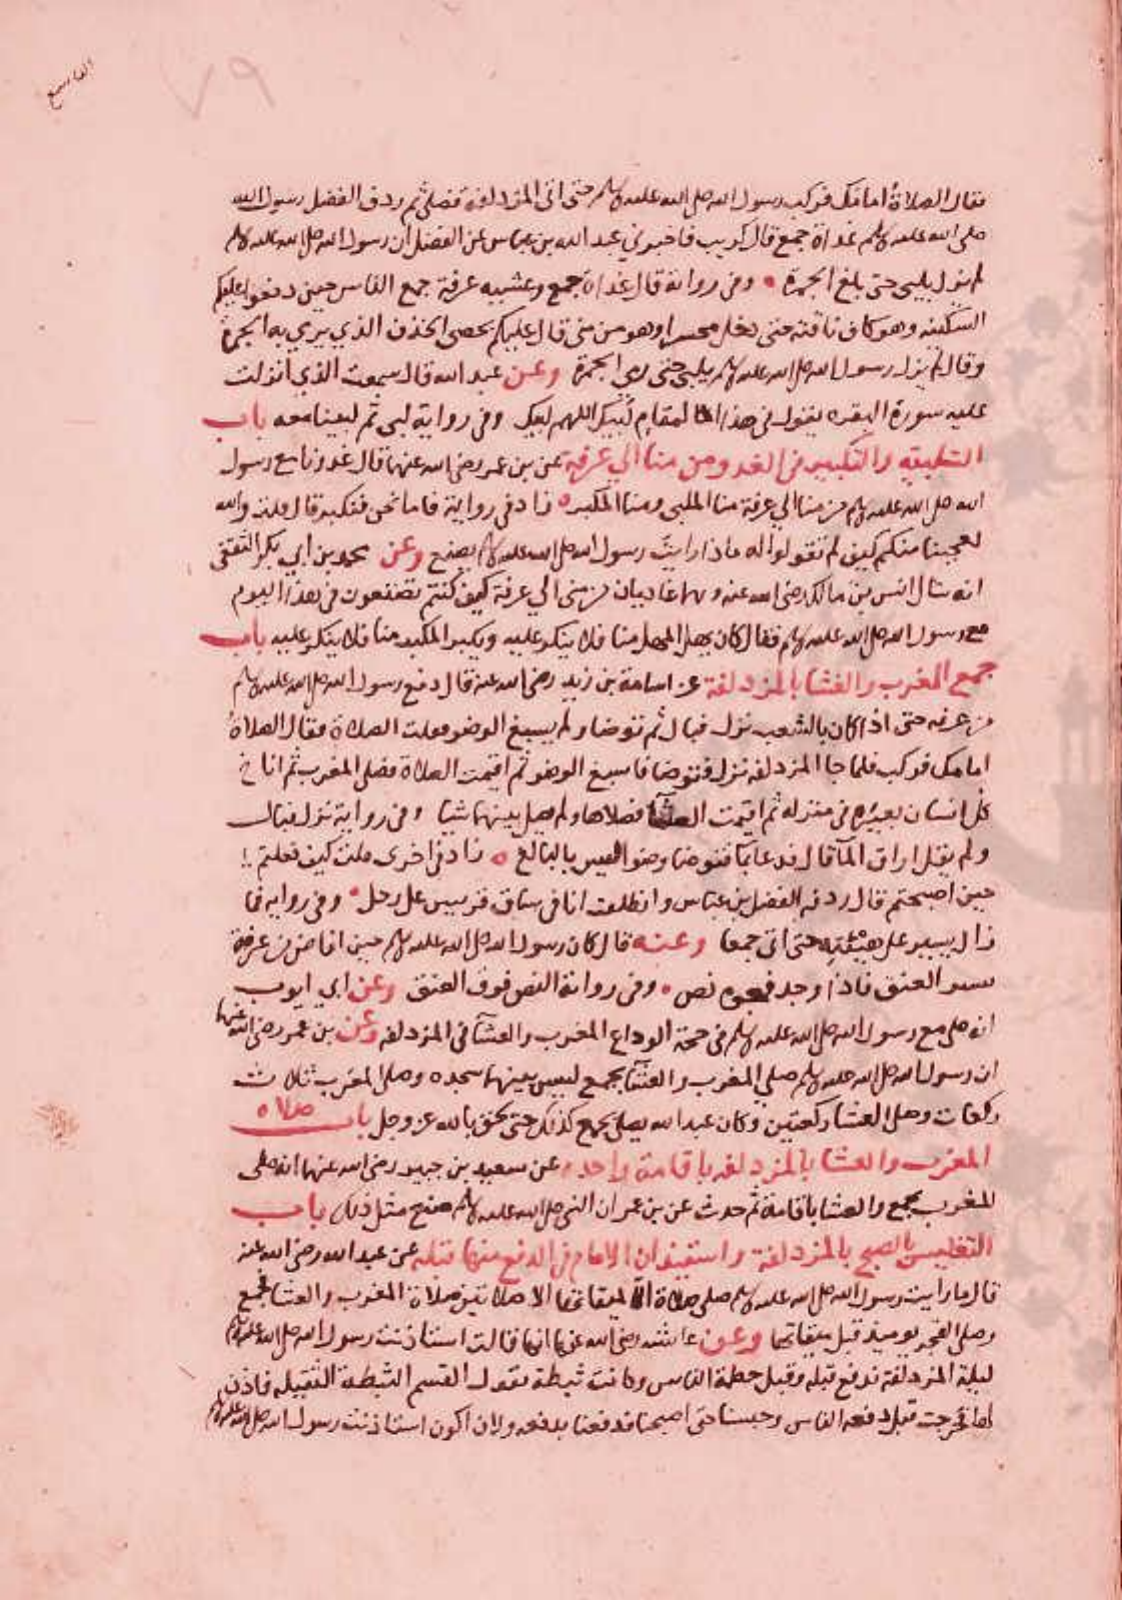 ٧٩
فقال الصلاة امامك فركب رسول الله صلى الله عليه وسلم حتى اتى المزدلفة فصلى ثم ردف الفضل رسول الله
صلى الله عليه وسلم غداة جمع قال كريب فاخبرني عبد الله بن عباس عن الفضل ان رسول الله صلى الله عليه وسلم
لم يزل يلبي حتى بلغ الجمرة وفي رواية قال غداة جمع وعشيه عرفة جمع الناس حين دفعوا عليكم
السكينه وهو كاف ناقته حتى دخل محسرا وهو من منى قال عليكم بحصى الخذف الذي يرمي به الجمرة
وقال لم يزل رسول الله صلى الله عليه وسلم يلبي حتى رمى الجمرة وعن عبد الله قال سمعت الذي انزلت
عليه سورة البقره يقول في هذا المقام لبيك اللهم لبيك وفي رواية لبى ثم لبينا معه باب
التلبيه والتكبير في الغدو من منا الي عرفة عن بن عمر رضي الله عنهما قال غدونا مع رسول
الله صلى الله عليه وسلم من منا الي عرفة منا الملبي ومنا المكبر زاد في رواية فاما نحن فنكبر قال قلت والله
لعجبنا منكم كيف لم تقولوا له ماذا رايت رسول الله صلى الله عليه وسلم يصنع وعن محمد بن ابي بكر الثقفي
انه سال انس بن مالك رضي الله عنه وهما غاديان من منى الي عرفة كيف كنتم تصنعون في هذا اليوم
مع رسول الله صلى الله عليه وسلم فقال كان يهل المهل منا فلا ينكر عليه ويكبر المكبر منا فلا ينكر عليه باب
جمع المغرب والعشا بالمزدلفة عن اسامة بن زيد رضي الله عنه قال دفع رسول الله صلى الله عليه وسلم
من عرفه حتى اذا كان بالشعب نزل فبال ثم توضا ولم يسبغ الوضو فقلت الصلاة فقال الصلاة
امامك فركب فلما جا المزدلفه نزل فتوضا فاسبغ الوضو ثم اقيمت الصلاة فصلى المغرب ثم اناخ
كل انسان بعيره في منزله ثم اقيمت العشا فصلاها ولم يصل بينهما شيا وفي رواية نزل فبال
ولم يقل اراق المآ قال فدعا بمآ فتوضا وضوا ليس بالبالغ زاد في اخرى قلت كيف فعلتم
حين اصبحتم قال ردفه الفضل بن عباس وانطلقت انا في سباق قريش على رجل وفي روايه فما
زال يسير على هيئته حتى اتى جمعا وعنه قال كان رسول الله صلى الله عليه وسلم حين افاض من عرفة
يسير العنق فاذا وجد فجوه نص وفي رواية النص فوق العنق وعن ابي ايوب
انه صلى مع رسول الله صلى الله عليه وسلم في حجة الوداع المغرب والعشآ في المزدلفه وعن بن عمر رضي الله عنهما
ان رسول الله صلى الله عليه وسلم صلي المغرب والعشآ بجمع ليس بينهما سجده وصلى المغرب ثلاث
ركعات وصلى العشا ركعتين وكان عبد الله يصلي بجمع كذلك حتى لحق بالله عز وجل باب صلاه
المغرب والعشا بالمزدلفه باقامة واحده عن سعيد بن جبير رضي الله عنهما انه صلى
المغرب بجمع والعشا باقامة ثم حدث عن بن عمر ان النبي صلى الله عليه وسلم صنع مثل ذلك باب
التغليس بالصبح بالمزدلفة واستيذان الامام في الدفع منها قبله عن عبد الله رضي الله عنه
قال ما رايت رسول الله صلى الله عليه وسلم صلى صلاة الا لميقاتها الا صلاتين صلاة المغرب والعشا بجمع
وصلى الفجر يوميذ قبل ميقاتها وعن عائشه رضي الله عنها انها قالت استاذنت رسول الله صلى الله عليه وسلم
ليلة المزدلفة تدفع قبله وقبل حطمة الناس وكانت ثبطة يقول القسم الثبطة الثقيله فاذن
لها فخرجت قبل دفعه الناس وحبسنا حتى اصبحنا فدفعنا بدفعه ولان اكون استاذنت رسول الله صلى الله عليه وسلم